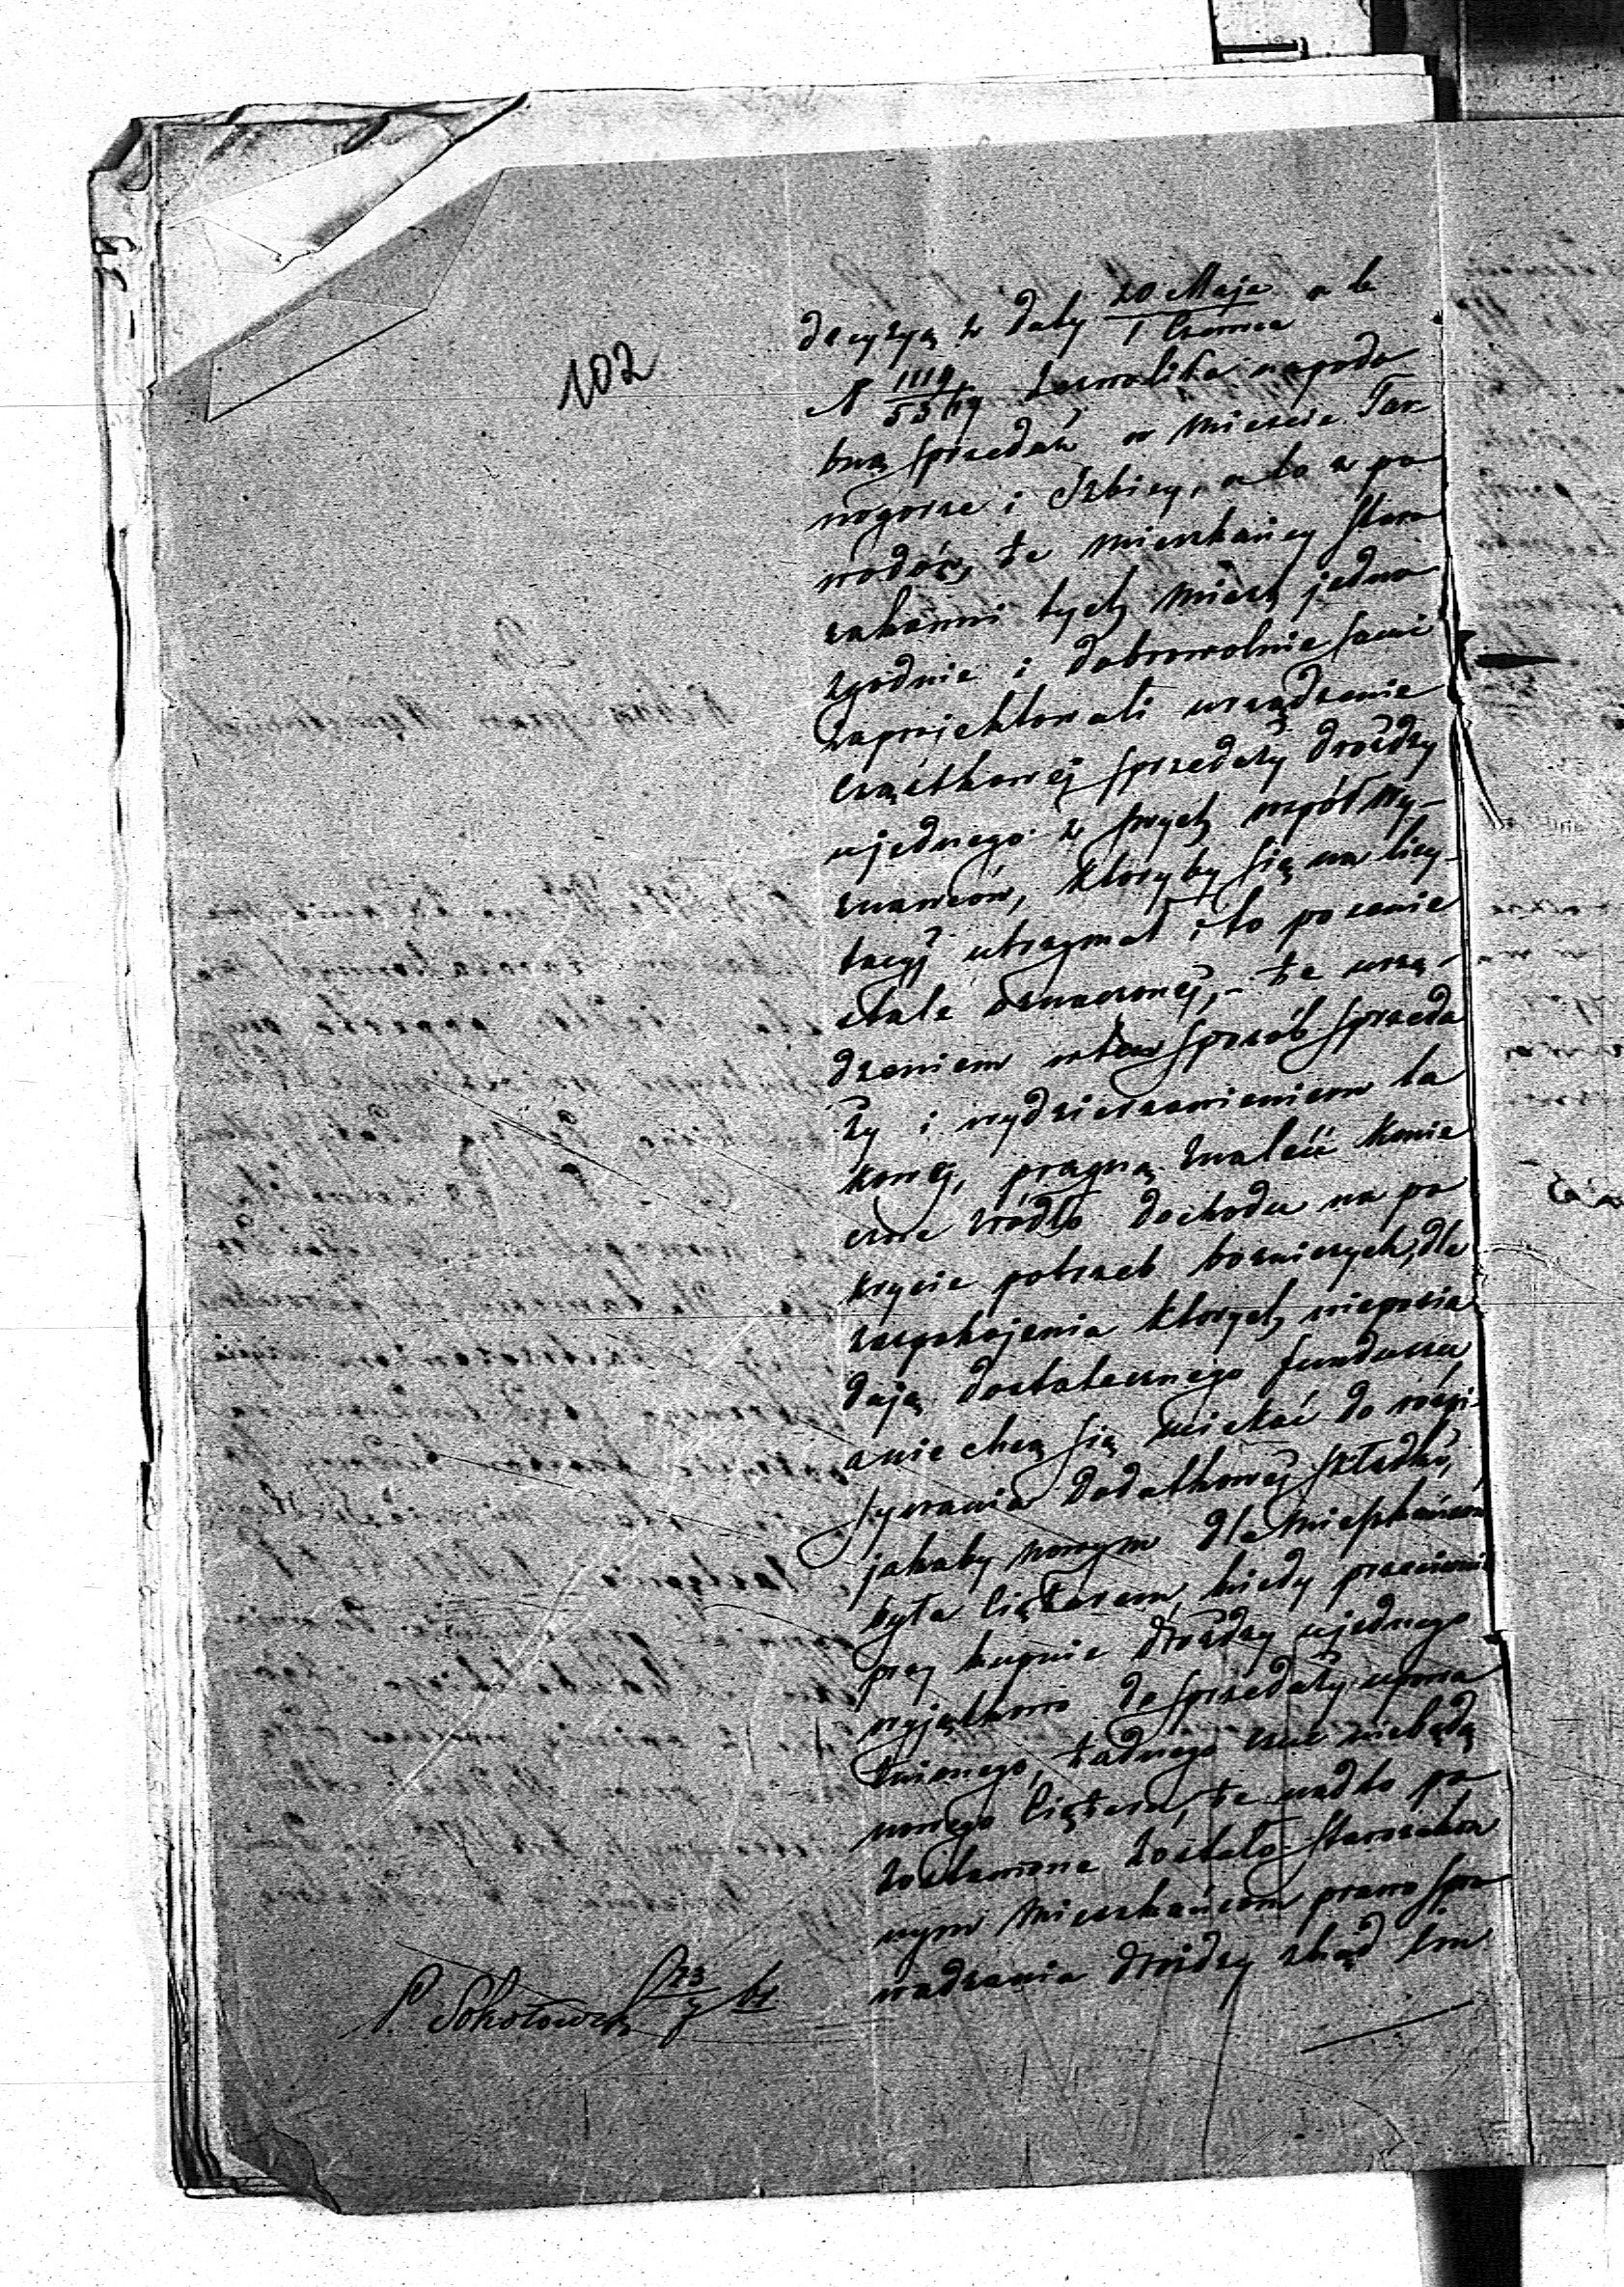 102
decyzyą z daty 20 Maja / 1 Czerwca
N zezwoliła na podo
bną sprzedaż w mieście Tar
nogorze i Izbicy, a to z po
wodów, że mieszkańcy staro
zakonni tych miast jedno
zgodnie i dobrowolnie sami
zaprojektowali urządzenie
cząstkowej sprzedaży drożdży
u jednego z swych współwy-
znawców, któryby się na licy-
tacyj utrzymał i to po cenie
stale oznaczonej, - że urzą-
dzeniem w ten sposób sprzeda
ży i wydzierżawieniem ta
kowej, pragną znaleść konie
czne źródło dochodu na po
krycie potrzeb bożniczych, dla
zaspokojenia których nieposia
dają dostatecznego funduszu
a nie chcą się uciekać do rozpi-
sywania dodatkowej składki,
jakaby nowym dla mieszkańców
była ciężarem, kiedy przeciwnie
przy kupnie drożdży u jednego
wyjątkowo do sprzedaży upowa
żnionego, żadnego czuć niebędą
nowego ciężaru, że nadto po
zostawione zostało starozakon
nym mieszkańcom prawo spro
wadzania drożdży zkąd im
P. Sokołowski 23/7 61